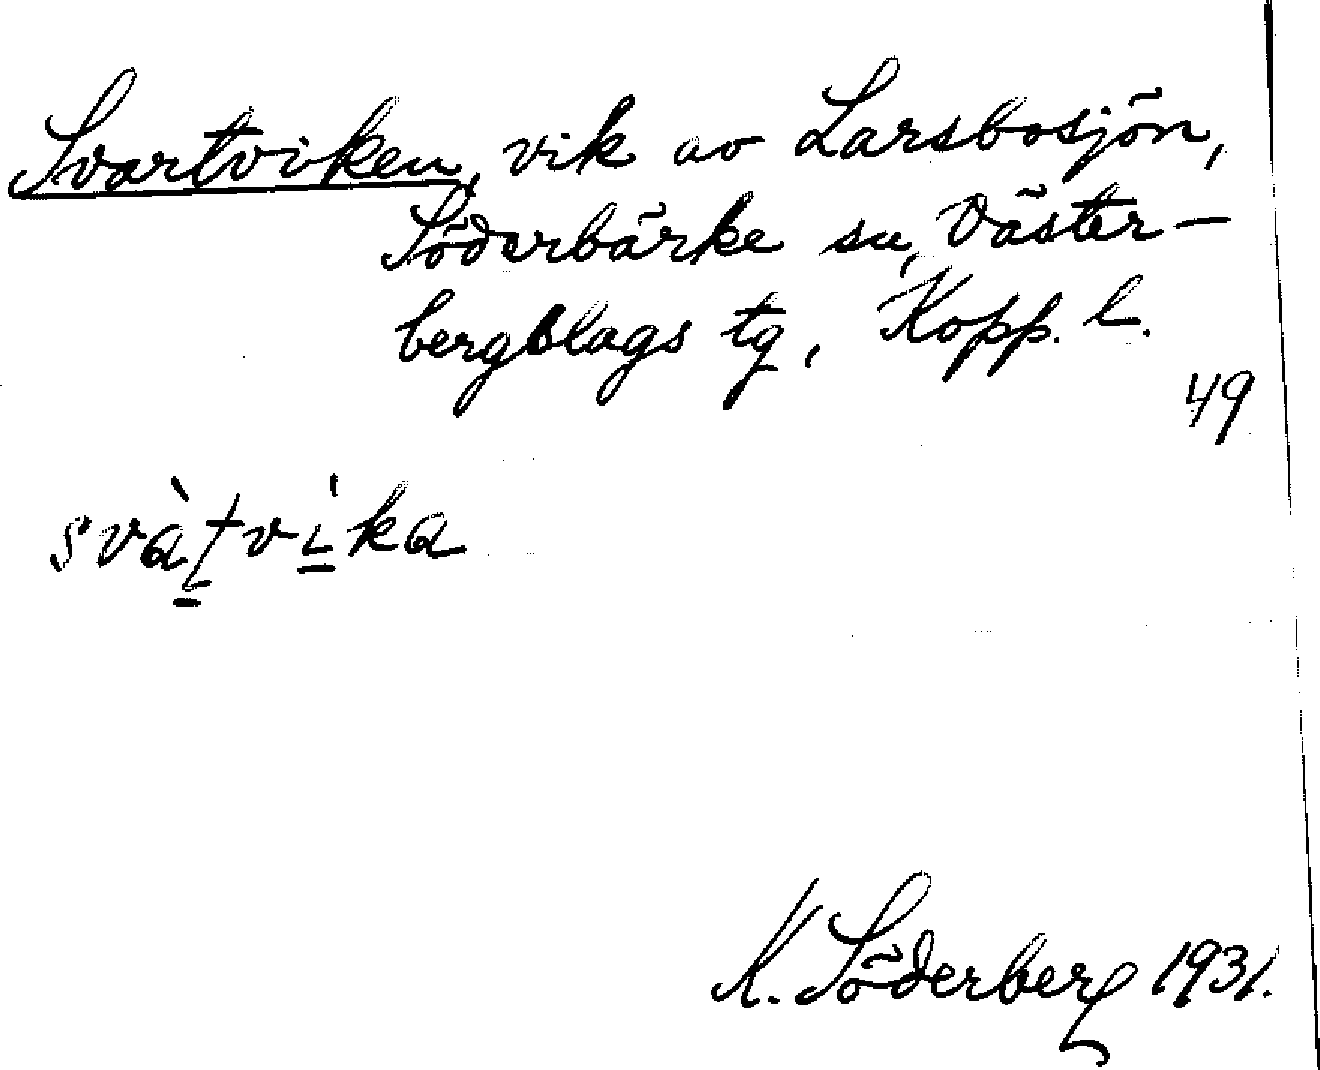 Svartviken, vik av Larsbosjön,
Söderbärke sn, Väster-
bergslags tg, Kopp. l.
49
svàt̠vi̠ka
K. Söderberg 1931.